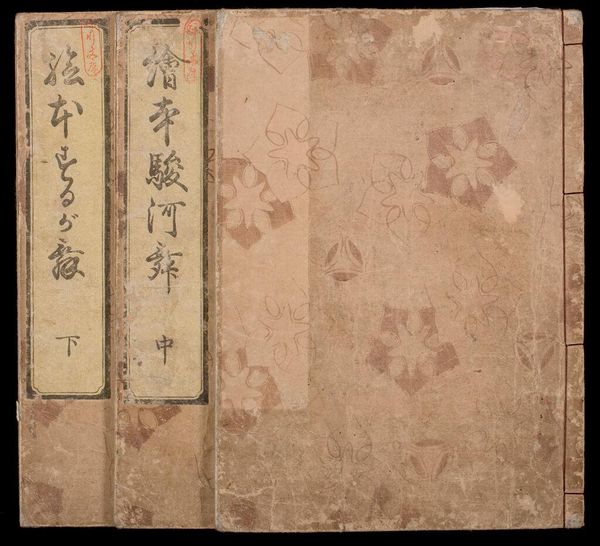 繪本駿河舞
中
絵本するが舞
下